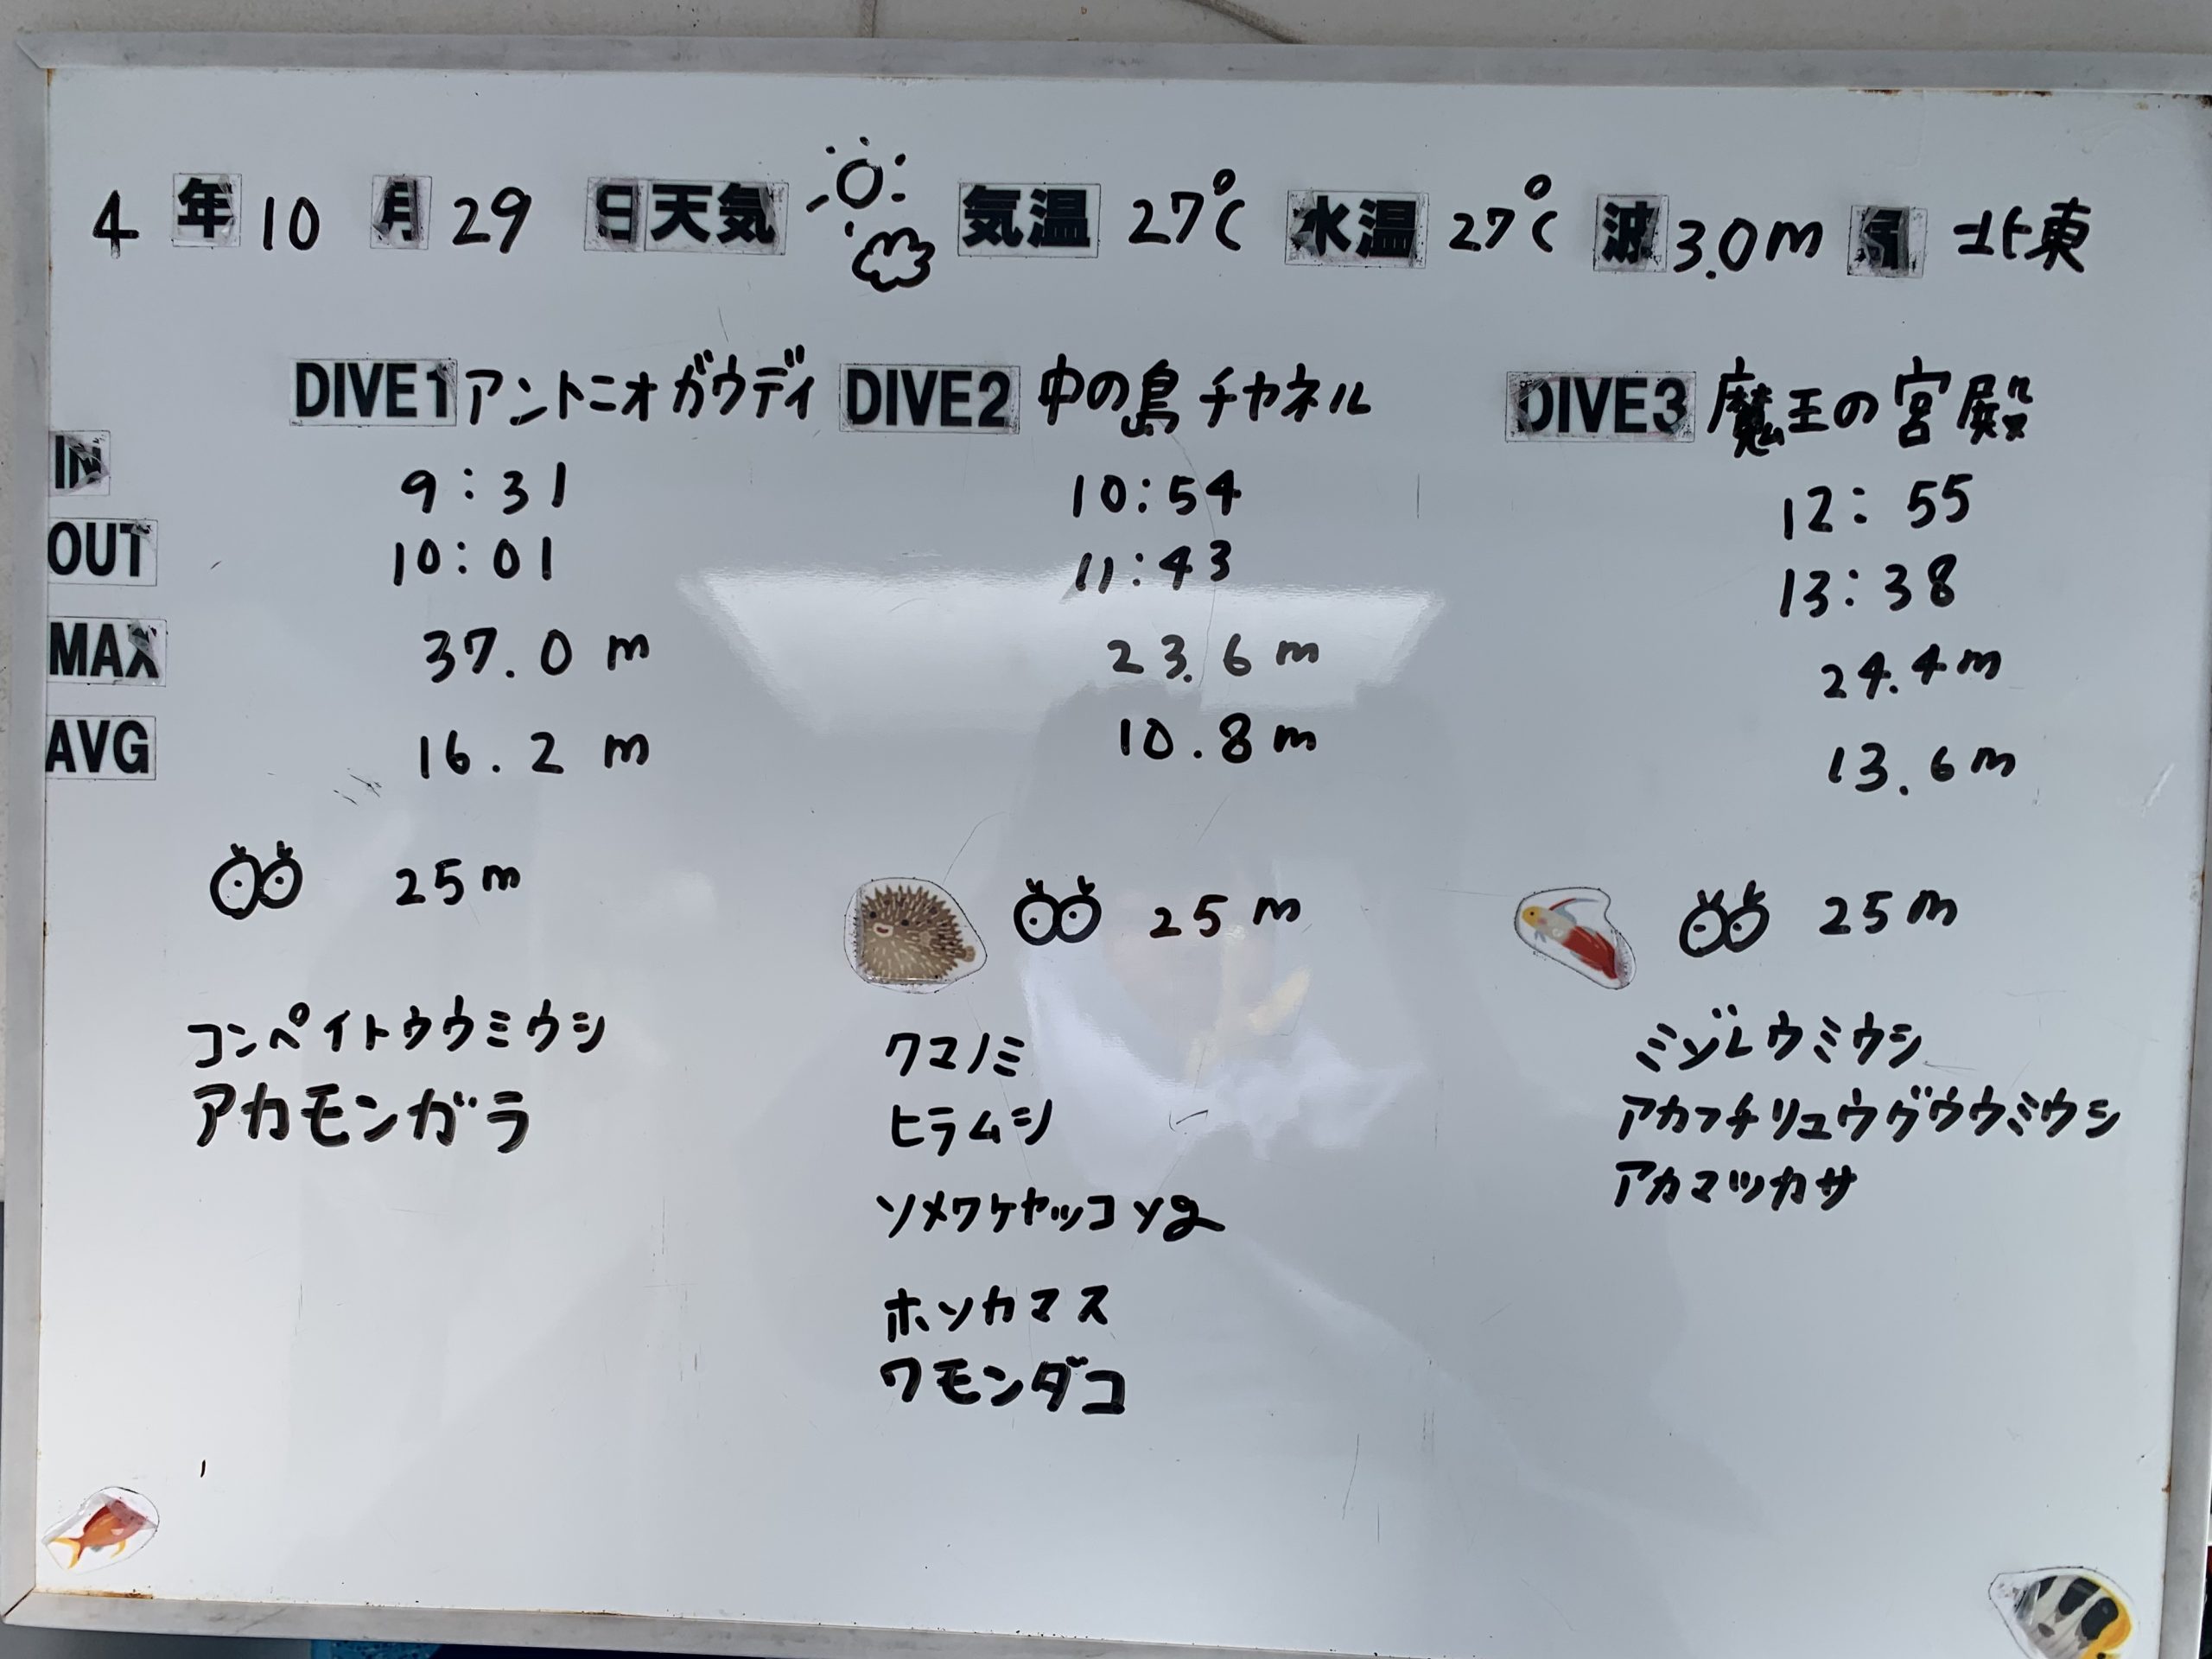 4年10月29日天気 気温27℃ 水温27℃ 波3.0m 風北東
DIVE1 アントニオガウディ DIVE2 中の島チャネル DIVE3 魔王の宮殿
IN 9:31 10:54 12:55
OUT 10:01 11:43 13:38
MAX 37.0m 23.6m 24.4m
AVG 16.2m 10.8m 13.6m
25m 25m 25m
コンペイトウウミウシ
アカモンガラ
クマノミ
ヒラムシ
ソメワケヤッコyg
ホソカマス
ワモンダコ
ミゾレウミウシ
アカフチリュウグウウミウシ
アカマツカサ